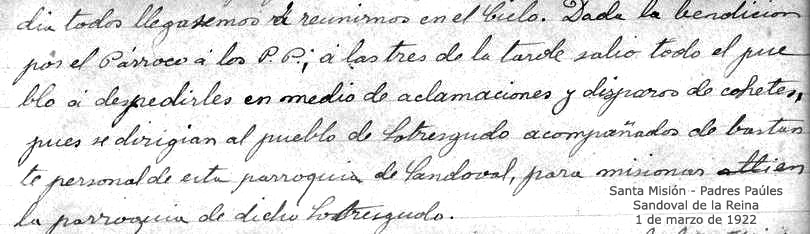 dia todos llegasemos á reunirnos en el Cielo. Dada la bendicion
por el Párroco á los P. P.; á las tres de la tarde salio todo el pue
blo á despedirles en medio de aclamaciones y disparos de cohetes,
pues se dirigian al pueblo de Sotresgudo acompañados de bastan
te personal de esta parroquia de Sandoval, para misionar allí en
la parroquia de dicho Sotresgudo.
Santa Misión - Padres Paúles
Sandoval de la Reina
1 de marzo de 1922